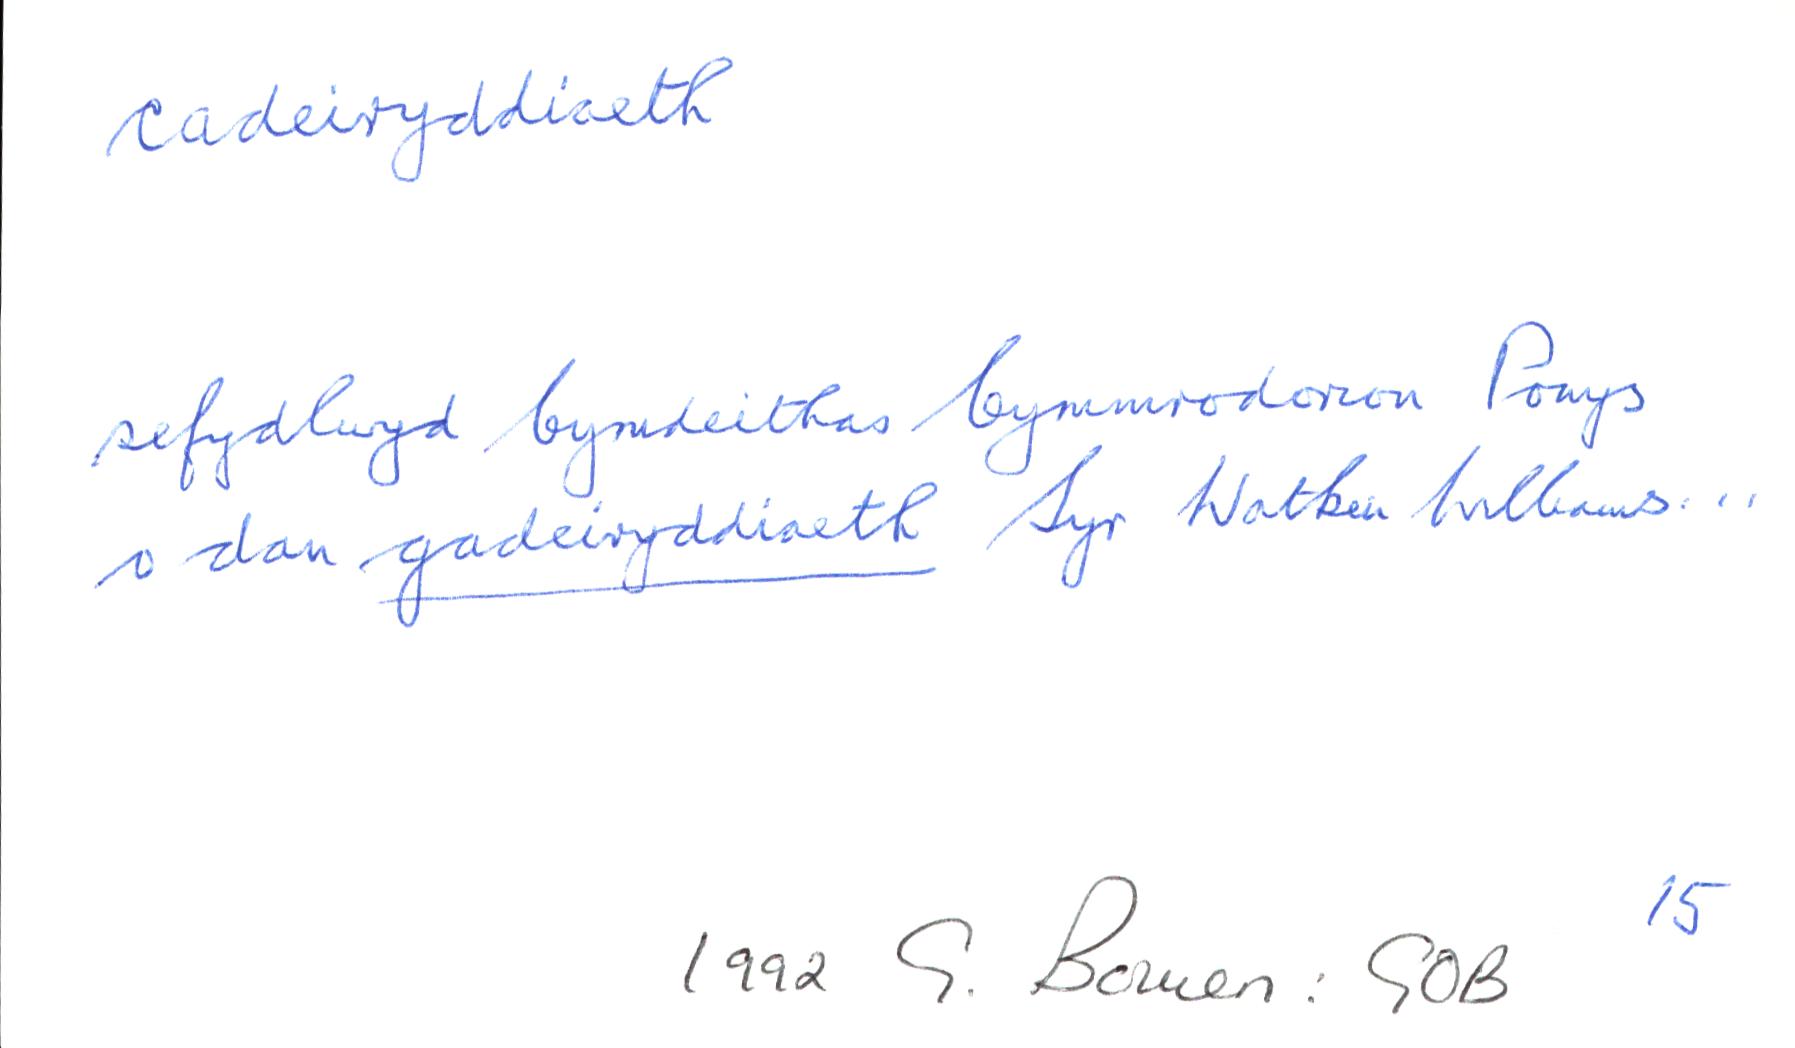 cadeiryddiaeth
sefydlwyd Cymdeithas Cymmrodorion Powys
o dan gadeiryddiaeth Syr Watkin Williams...
15
1992 G. Bowen: GOB